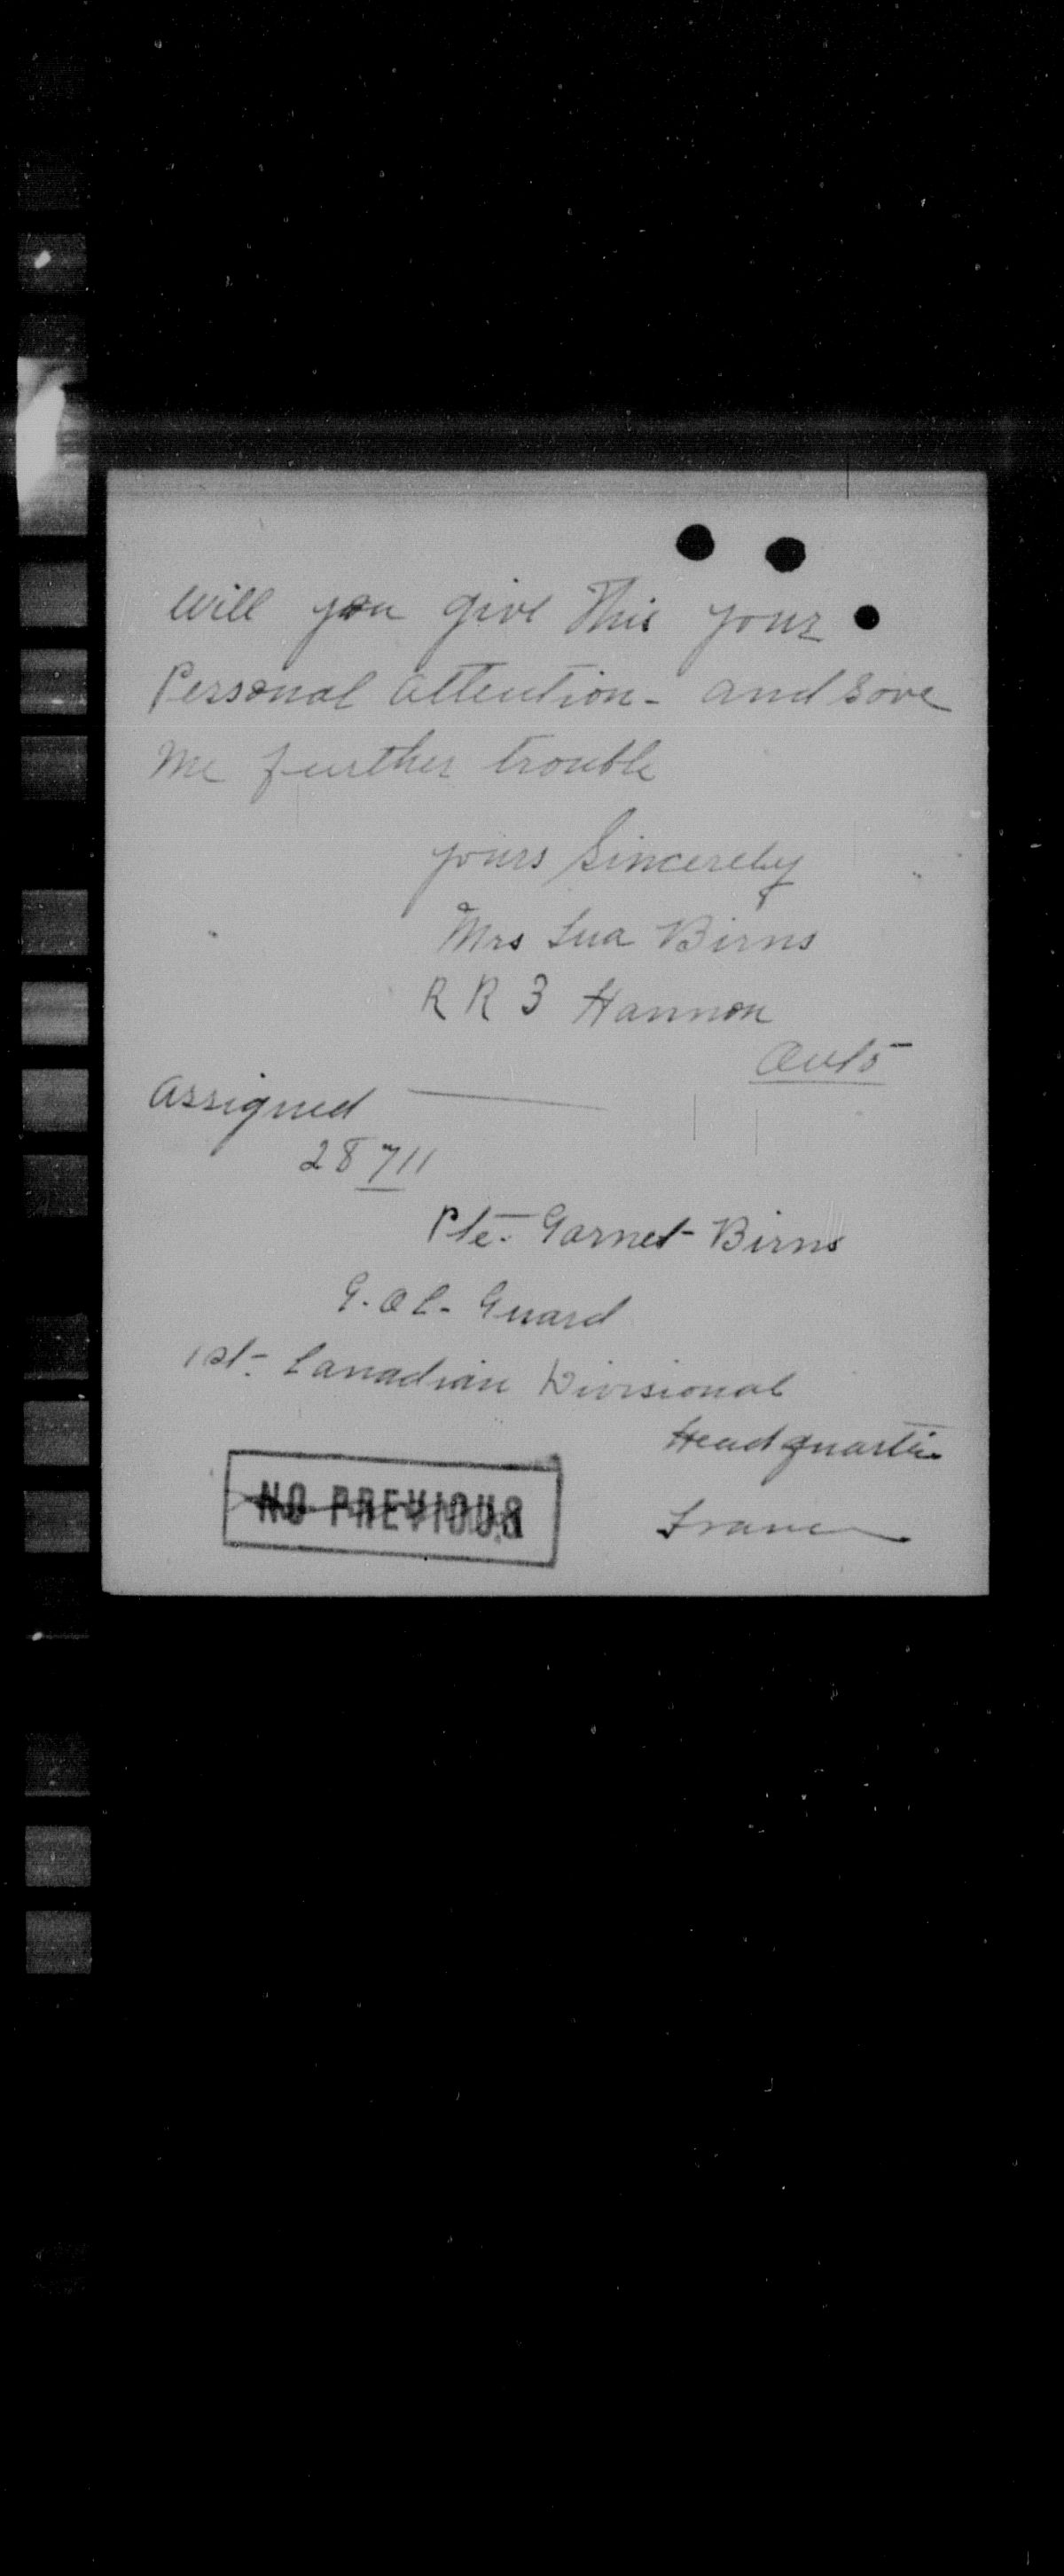 Will you give this your
Personal attention - and save
me further trouble
yours Sincerely
Mrs Birns
R R 3 Hannon
Ont
assigned
28711
Pte. Garnet Birns
G.O.C. Guard
1st. Canadian Divisional
Headquarters
France
NO PREVIOUS